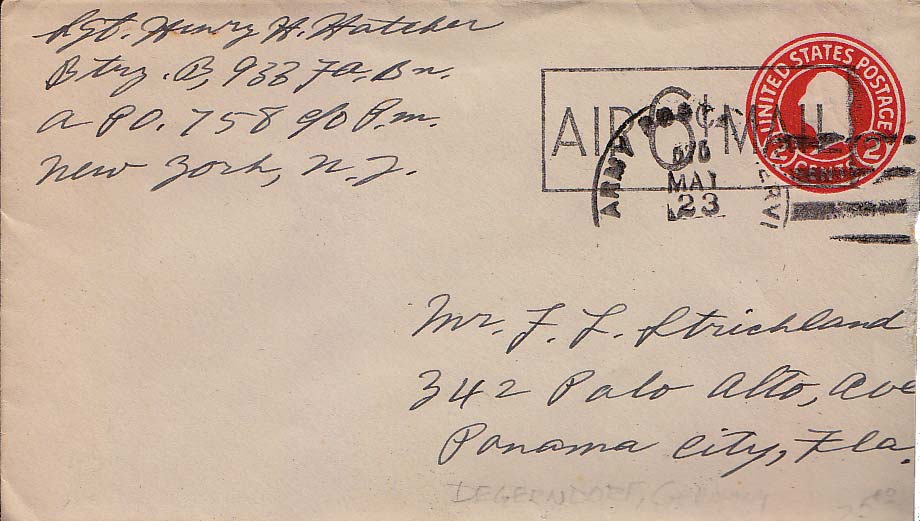 Sgt. Henry H. Hatcher
Btry. B, 933 FA. Bn.
APO. 758 c/o P.M.
New York, N.Y.
AIR 6¢ MAIL
UNITED STATES POSTAGE
2 CENTS 2
ARMY POST
MAY
23
Mr. F. L. Strickland
342 Palo Alto, Ave
Panama City, Fla.
DEGERNDORF, Germany